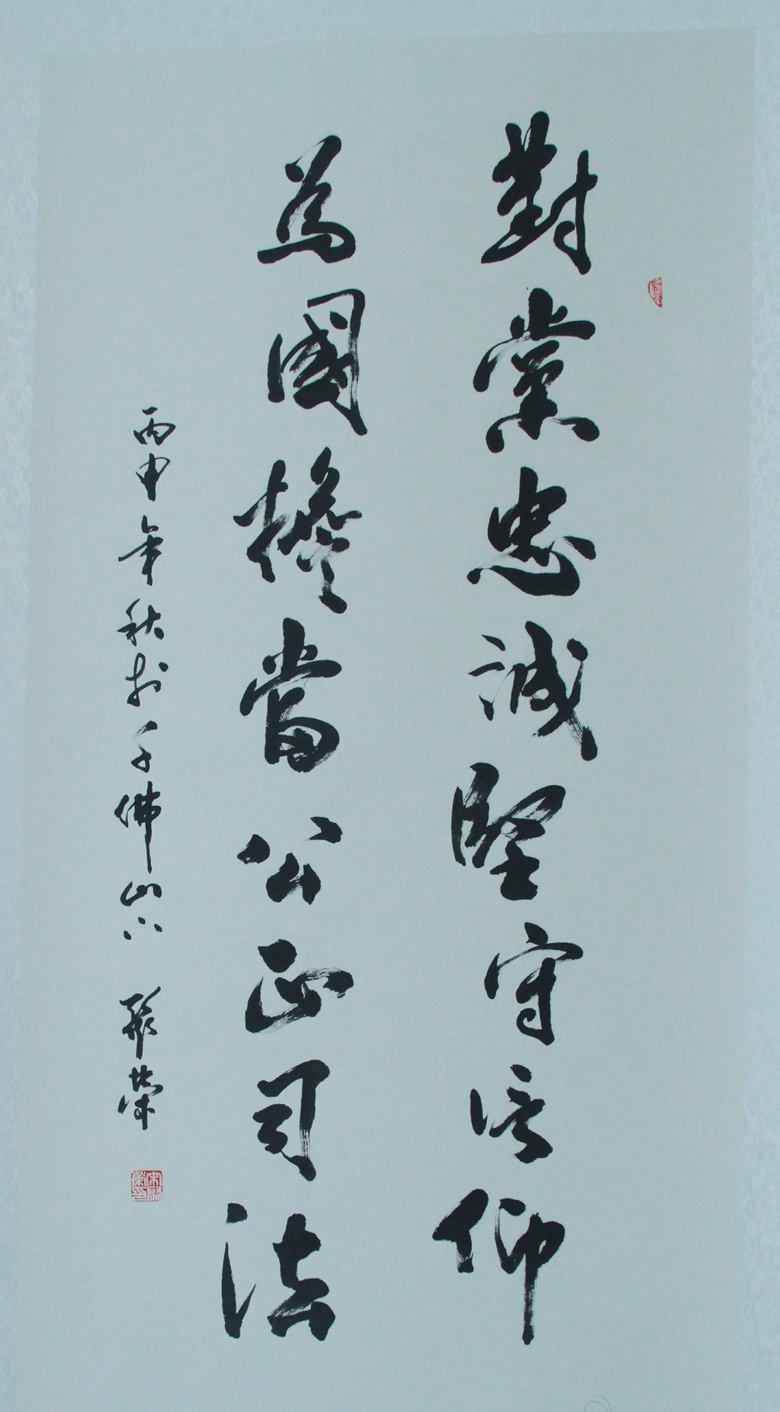 對黨忠誠堅守信仰
為國擔當公正司法
丙申年秋於千佛山下 榮